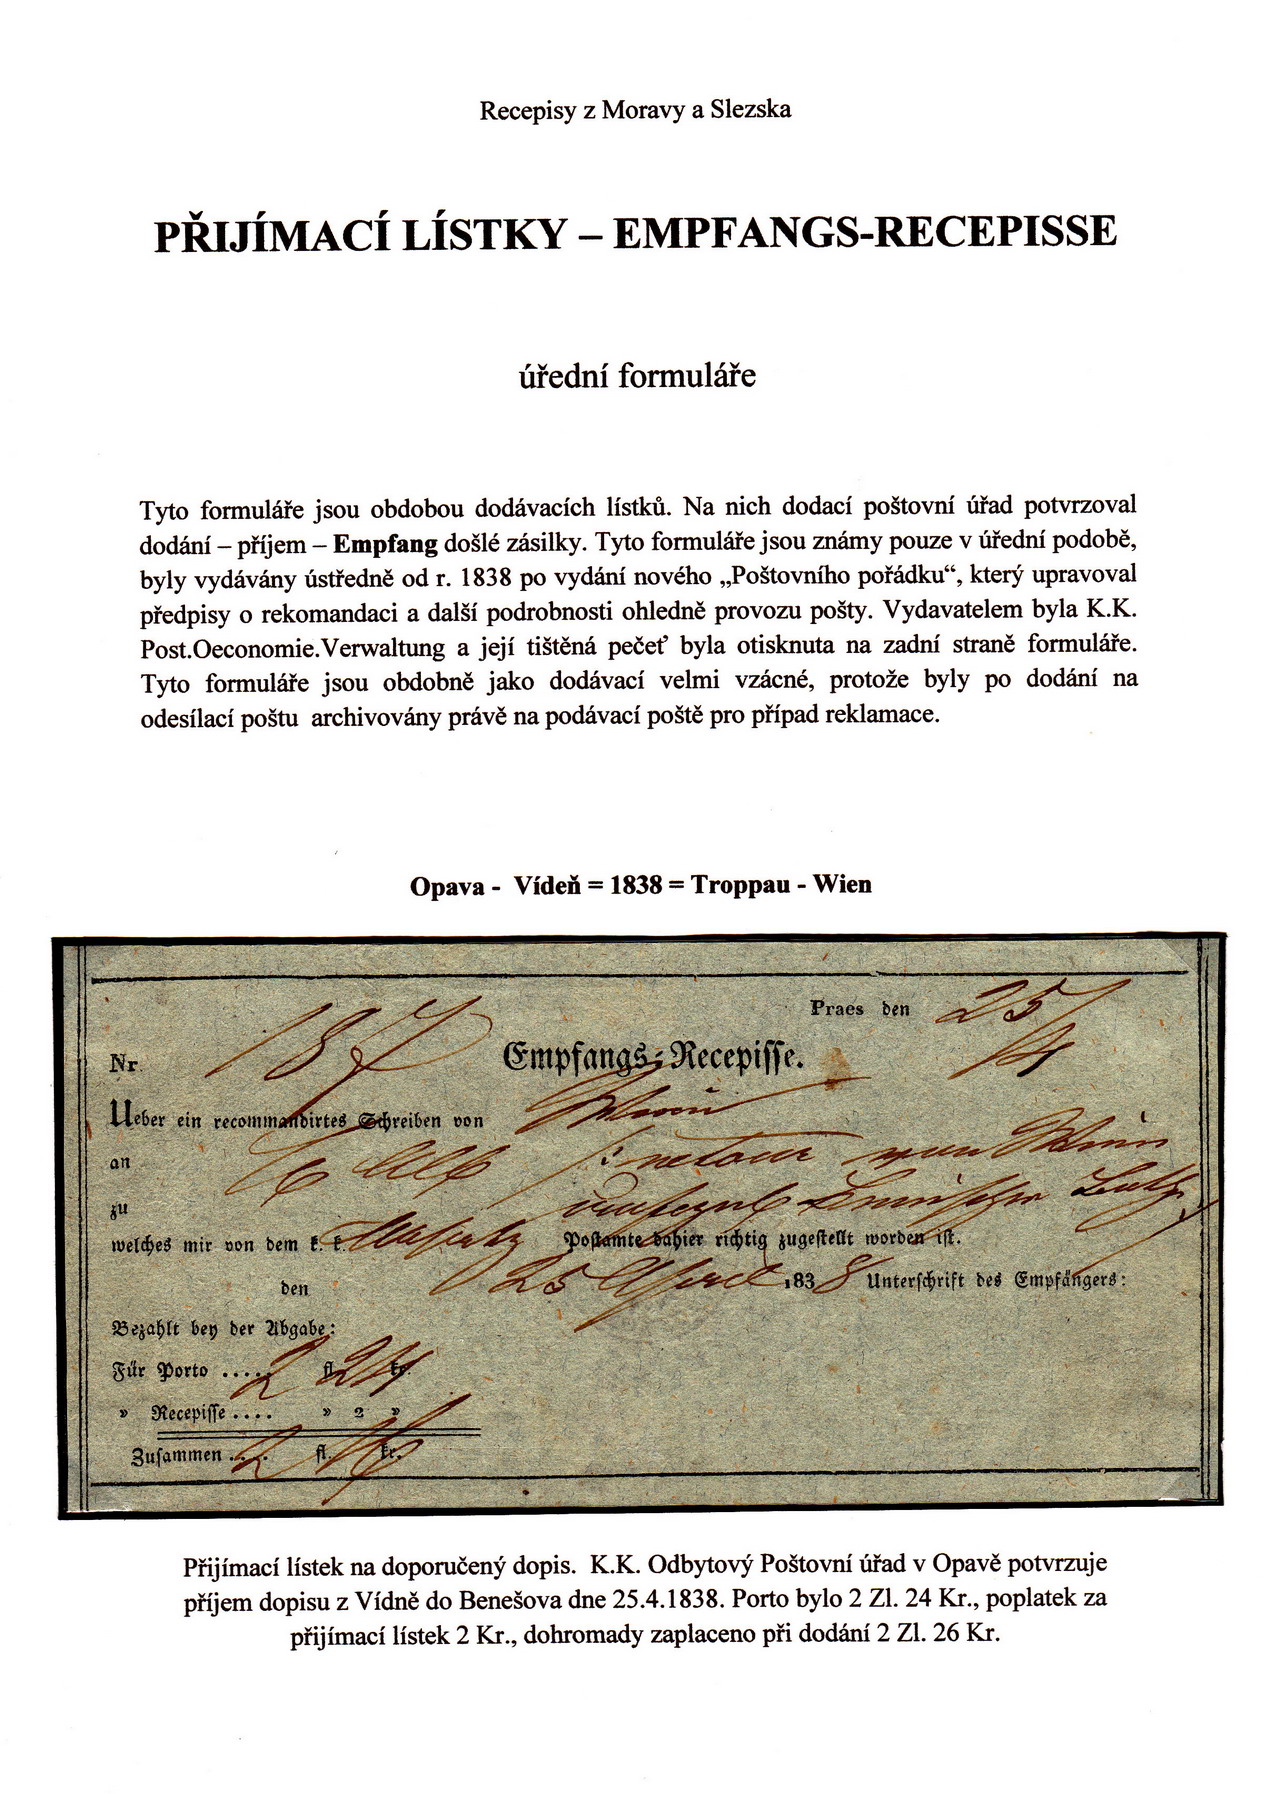 Recepisy z Moravy a Slezska
PŘIJÍMACÍ LÍSTKY – EMPFANGS-RECEPISSE
úřední formuláře
Tyto formuláře jsou obdobou dodávacích lístků. Na nich dodací poštovní úřad potvrzoval
dodání – příjem – Empfang došlé zásilky. Tyto formuláře jsou známy pouze v úřední podobě,
byly vydávány ústředně od r. 1838 po vydání nového „Poštovního pořádku“, který upravoval
předpisy o rekomandaci a další podrobnosti ohledně provozu pošty. Vydavatelem byla K.K.
Post.Oeconomie.Verwaltung a její tištěná pečeť byla otisknuta na zadní straně formuláře.
Tyto formuláře jsou obdobně jako dodávací velmi vzácné, protože byly po dodání na
odesílací poštu archivovány právě na podávací poště pro případ reklamace.
Opava - Vídeň = 1838 = Troppau - Wien
Praes den 25/4
Nr 187 Empfangs-Recepisse.
Ueber ein recommandirtes Schreiben von Wien
an
zu
welches mir von dem k. k. Postamte dahier richtig zugestellt worden ist.
den 25 April 1838 Unterschrift des Empfängers:
Bezahlt bey der Abgabe:
Für Porto ..... 2 fl. 24 kr.
» Recepisse .... » 2 »
Zusammen .... 2 fl. 26 kr.
Přijímací lístek na doporučený dopis. K.K. Odbytový Poštovní úřad v Opavě potvrzuje
příjem dopisu z Vídně do Benešova dne 25.4.1838. Porto bylo 2 Zl. 24 Kr., poplatek za
přijímací lístek 2 Kr., dohromady zaplaceno při dodání 2 Zl. 26 Kr.